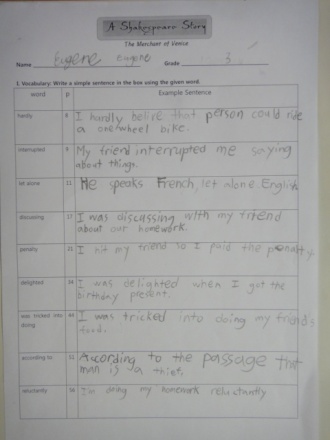 A Shakespeare Story
The Merchant of Venice
Name Eugene eugene Grade 3
I. Vocabulary: Write a simple sentence in the box using the given word.
word p Example Sentence
hardly 6 I hardly belire that person could ride
a onewheel bike.
interrupted 9 My friend interrupted me saying
about things.
let alone 11 He speaks French, let alone English
discussing 17 I was discussing with my friend
about our homework.
penalty 21 I hit my friend so I paid the penalty
delighted 24 I was delighted when I got the
birthday present.
was tricked into
doing I was tricked into doing my friend's
food.
according to 51 According to the passage that
man is a thief.
reluctantly 56 I'm doing my homework reluctantly